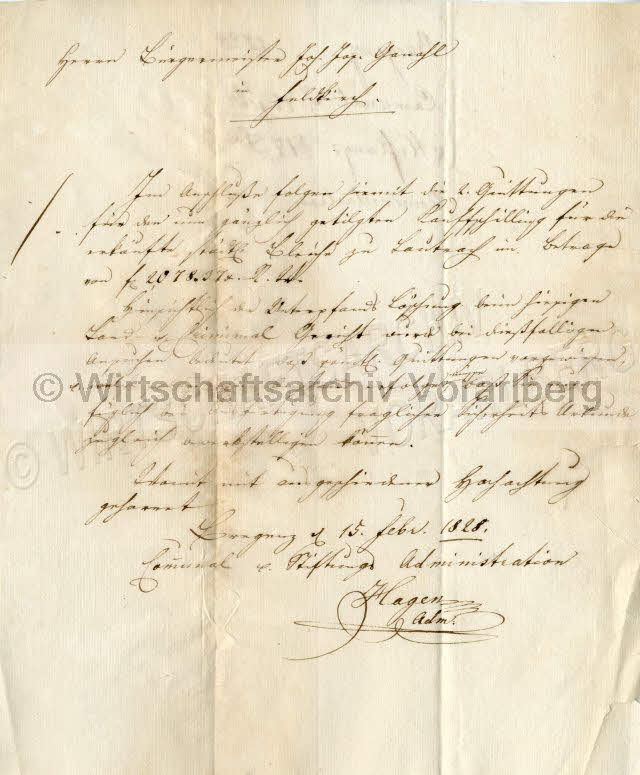 Herrn Bürgermeister Joh. Jos. Ganahl
in Feldkirch.
Im Anschluße folgen hiemit die 2. Quittungen
für den nun gänzlich getilgten Kaufschilling für die
erkaufte städt. Bleiche zu Lauterach im Betrage
von f 2078.37 x. R. W.
Hinsichtlich der Unterpfands Löschung beim hiesigen
Land u. Criminal Gericht wurde bei dießfälligem
Ansuchen bedeutet, daß sämtl: Quittungen vorgewiesen,
füglich fraglicher Urkunde
zugleich können.
Womit mit ausgeschiedener Hochachtung
geharret
Bregenz d 15. Febr. 1828.
Communal u. Stiftungs Administration
Hagen
Adm.
© Wirtschaftsarchiv Vorarlberg